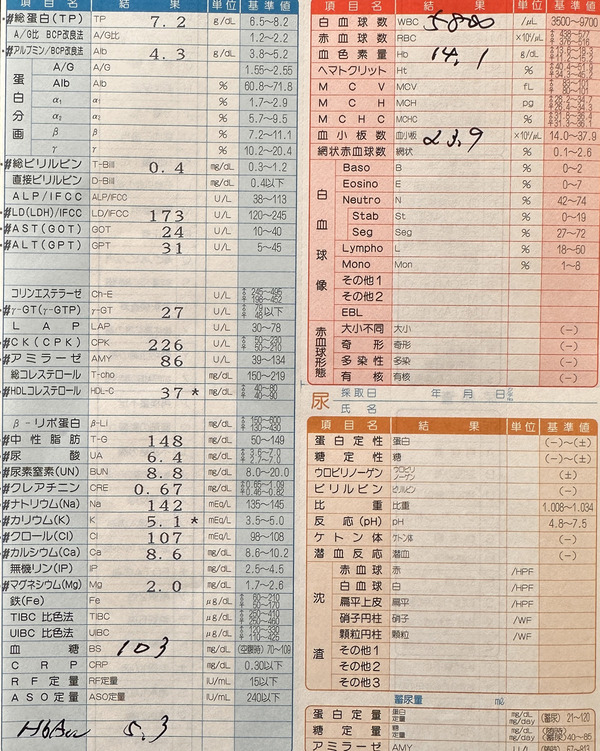 項目名 結果 単位 基準値
#総蛋白(TP) TP 7.2 g/dL 6.5~8.2
A/G比 BCP改良法 A/G比 1.2~2.2
#アルブミン/BCP改良法 Alb 4.3 g/dL 3.8~5.2
蛋白分画
A/G A/G 1.55~2.55
Alb Alb % 60.8~71.8
α₁ α₁ % 1.7~2.9
α₂ α₂ % 5.7~9.5
β β % 7.2~11.1
γ γ % 10.2~20.4
#総ビリルビン T-Bill 0.4 mg/dL 0.3~1.2
直接ビリルビン D-Bill mg/dL 0.4以下
ALP/IFCC ALP/IFCC U/L 38~113
#LD(LDH)/IFCC LD/IFCC 173 U/L 120~245
#AST(GOT) GOT 24 U/L 10~40
#ALT(GPT) GPT 31 U/L 5~45
コリンエステラーゼ Ch-E U/L 245~495 198~452
#γ-GT(γ-GTP) γ-GT 27 U/L 79以下 48以下
LAP LAP U/L 30~78
#CK(CPK) CPK 226 U/L 50~230 50~210
#アミラーゼ AMY 86 U/L 39~134
総コレステロール T-cho mg/dL 150~219
#HDLコレステロール HDL-C 37* mg/dL 40~80 40~90
β-リポ蛋白 β-Li mg/dL 150~600 130~430
#中性脂肪 T-G 148 mg/dL 50~149
#尿酸 UA 6.4 mg/dL 3.6~7.0 2.7~7.0
#尿素窒素(UN) BUN 8.8 mg/dL 8.0~20.0
#クレアチニン CRE 0.67 mg/dL 0.65~1.09 0.46~0.82
#ナトリウム(Na) Na 142 mEq/L 135~145
#カリウム(K) K 5.1* mEq/L 3.5~5.0
#クロール(Cl) Cl 107 mEq/L 98~108
#カルシウム(Ca) Ca 8.6 mg/dL 8.6~10.2
無機リン(IP) IP mg/dL 2.5~4.5
#マグネシウム(Mg) Mg 2.0 mg/dL 1.7~2.6
鉄(Fe) Fe μg/dL 60~210 50~170
TIBC 比色法 TIBC μg/dL 250~410 250~460
UIBC 比色法 UIBC μg/dL 120~330 110~425
血糖 BS 103 mg/dL (空腹時) 70~109
CRP CRP mg/dL 0.30以下
RF定量 RF定量 IU/mL 15以下
ASO定量 ASO定量 IU/mL 240以下
5.3
項目名 結果 単位 基準値
白血球数 WBC 5800 /μL 3500~9700
赤血球数 RBC ×10⁴/μL 438~577 376~516
血色素量 Hb 14.1 g/dL 13.6~18.3 11.2~15.2
ヘマトクリット Ht % 40.4~51.9 34.3~45.2
MCV MCV fL 83~101 80~101
MCH MCH pg 28.2~34.7 26.4~34.3
MCHC MCHC % 31.8~36.4 31.3~36.1
血小板数 血小板 23.9 ×10⁴/μL 14.0~37.9
網状赤血球数 網状 % 0.1~2.6
白血球像
Baso B % 0~2
Eosino E % 0~7
Neutro N % 42~74
Stab St % 0~19
Seg Seg % 27~72
Lympho L % 18~50
Mono Mon % 1~8
その他1
その他2
EBL
赤血球形態
大小不同 大小 (−)
奇形 奇形 (−)
多染性 多染 (−)
有核 有核 (−)
尿 採取日 年 月 日
氏名
項目名 結果 単位 基準値
蛋白定性 蛋白 (−)~(±)
糖定性 糖 (−)~(±)
ウロビリノーゲン ウロビリノーゲン (±)
ビリルビン ビリルビン (−)
比重 比重 1.008~1.034
反応(pH) pH 4.8~7.5
ケトン体 ケトン体 (−)
潜血反応 潜血 (−)
沈渣
赤血球 赤 /HPF
白血球 白 /HPF
扁平上皮 扁平 /HPF
硝子円柱 硝子 /WF
顆粒円柱 顆粒 /WF
その他1
その他2
その他3
蓄尿量 mL
蛋白定量 蛋白定量 mg/dL mg/day (蓄尿) 21~120
糖定量 糖定量 mg/dL mg/day (随時) (蓄尿)40~85
アミラーゼ AMY U/L